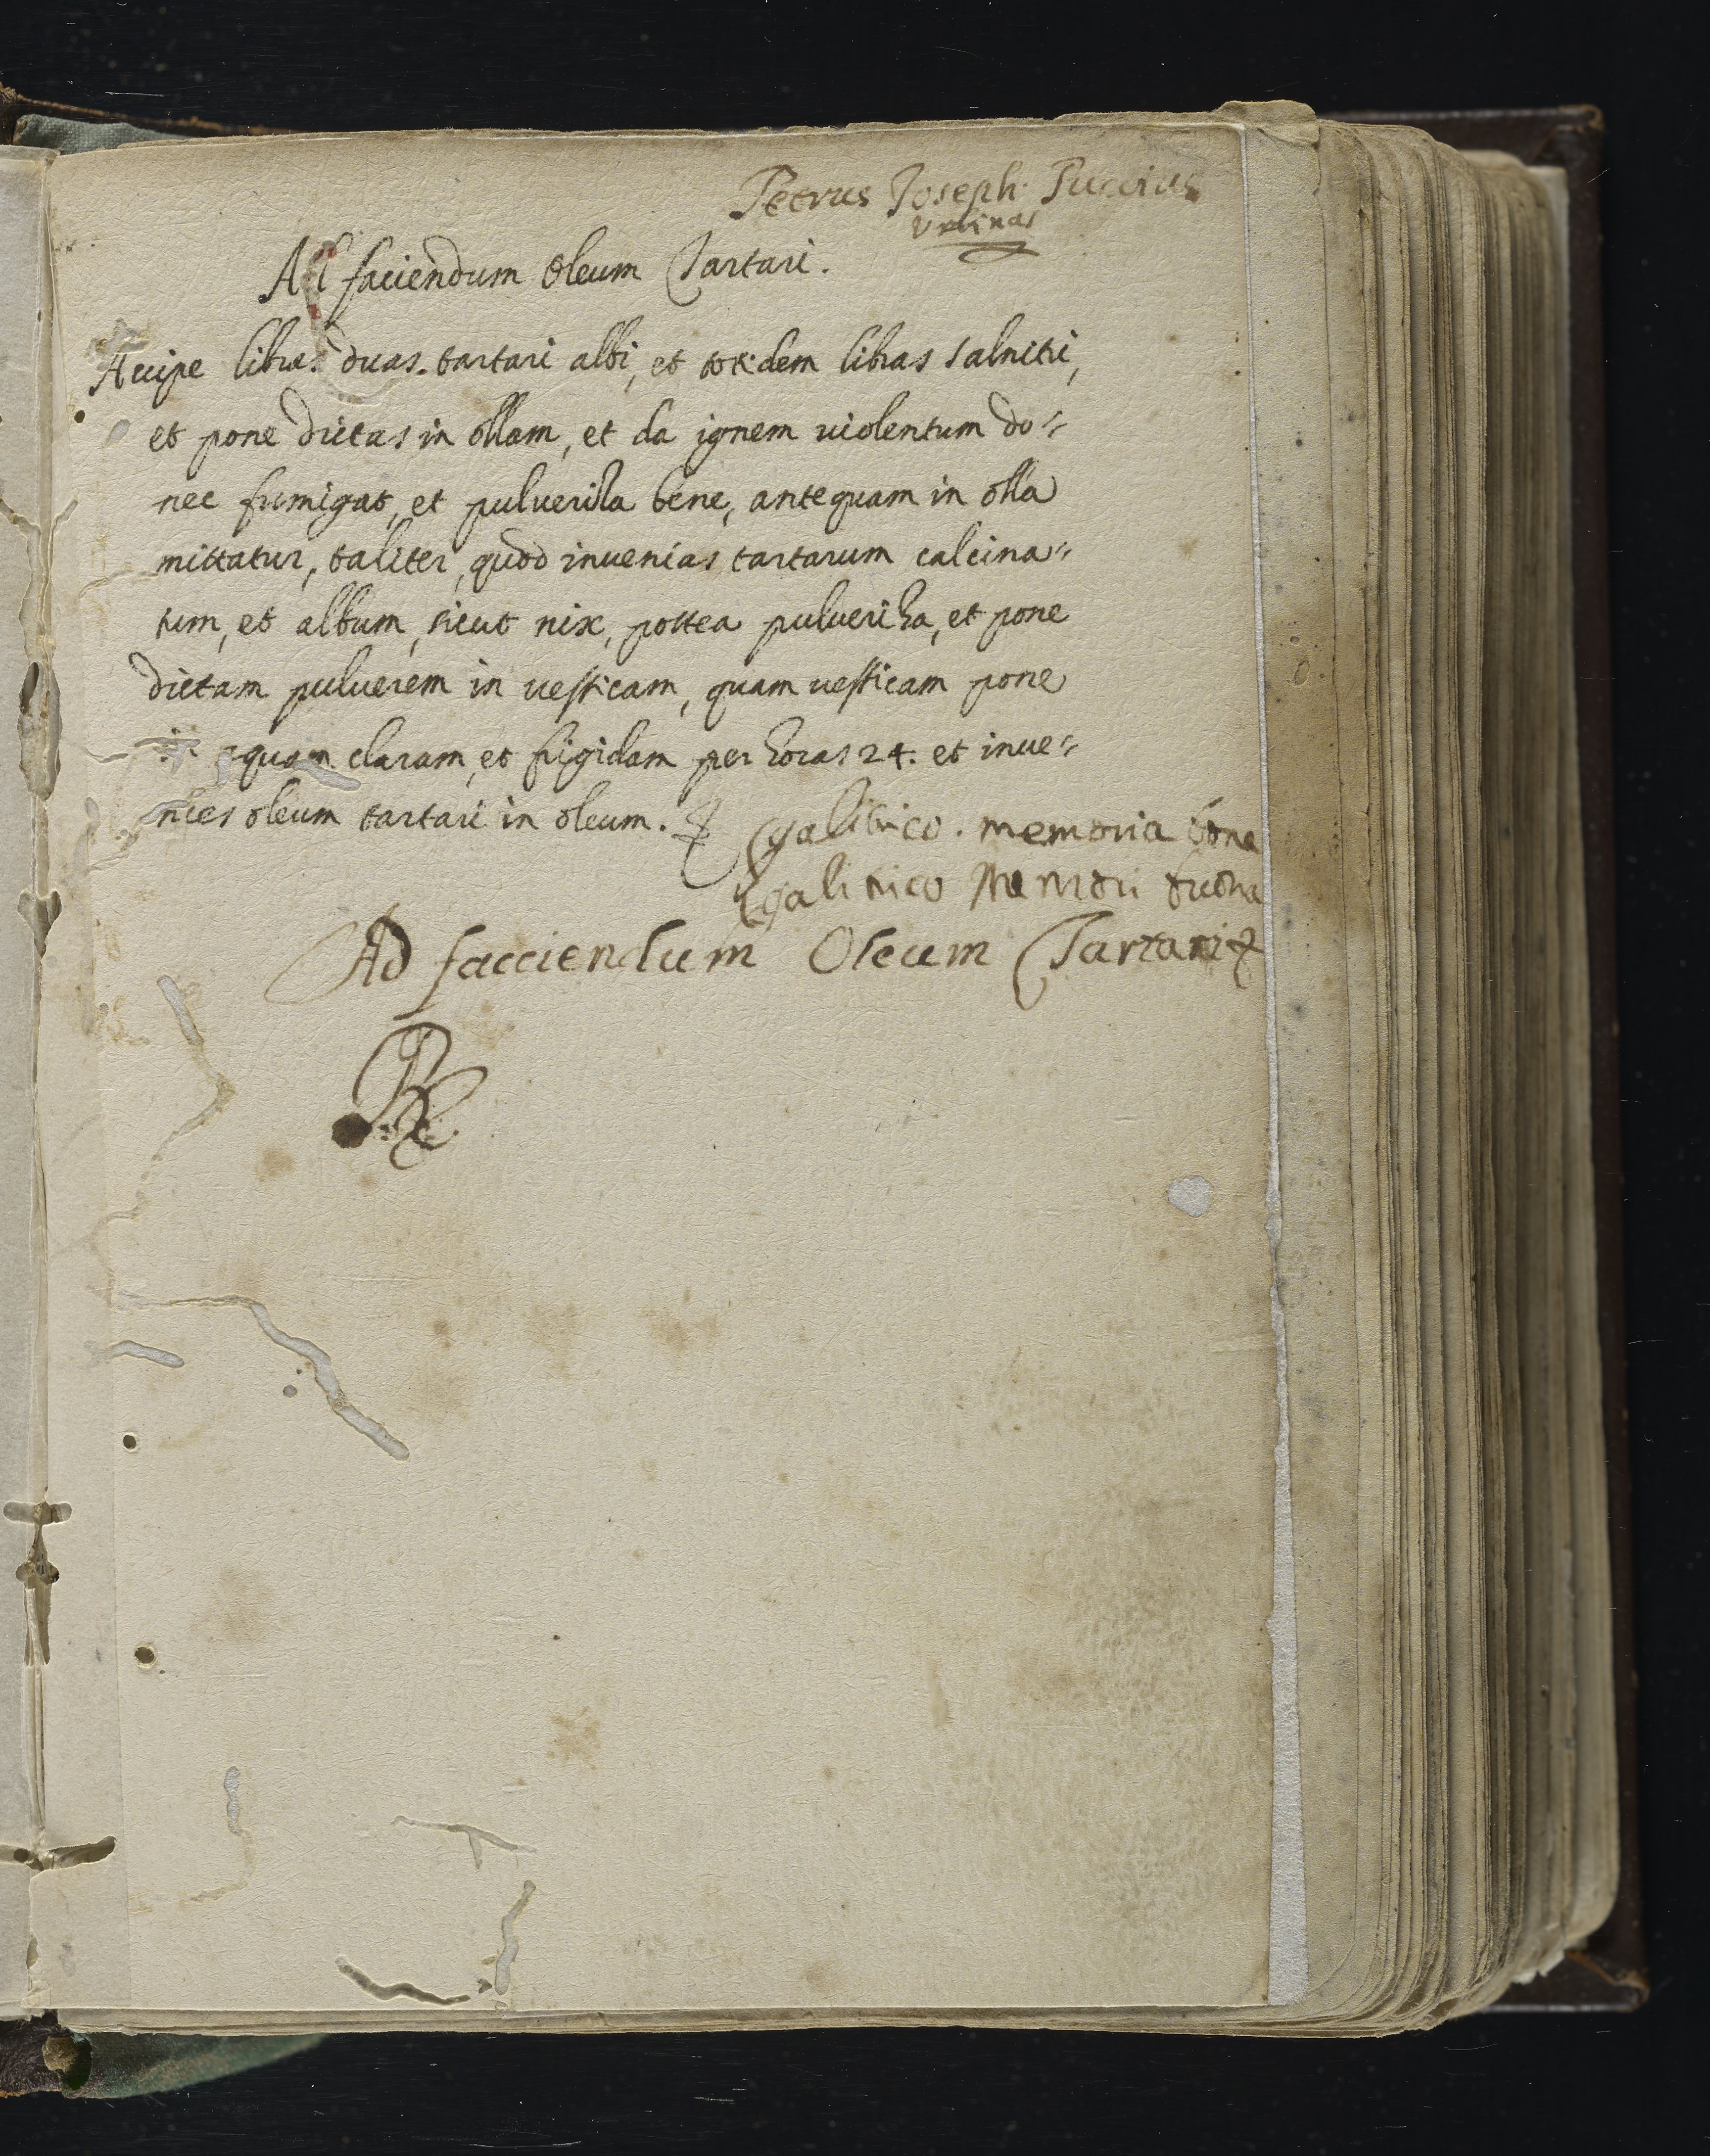 Petrus Joseph Puccius
Urbinas
Ad faciendum oleum Tartari.
Accipe libras duas tartari albi, et totidem libras salnitri,
et pone dictas in ollam, et da ignem uiolentum do=
nec fumigat, et pulueriza bene, antequam in olla
mittatur, taliter, quod inuenias tartarum calcina=
tum, et album, sicut nix, postea pulueriza, et pone
dictam puluerem in uessicam, quam uessicam pone
in aquam claram, et frigidam per horas 24. et inue=
nies oleum tartari in oleum.
memoria bona
Ad facciendum Oleum Tartari